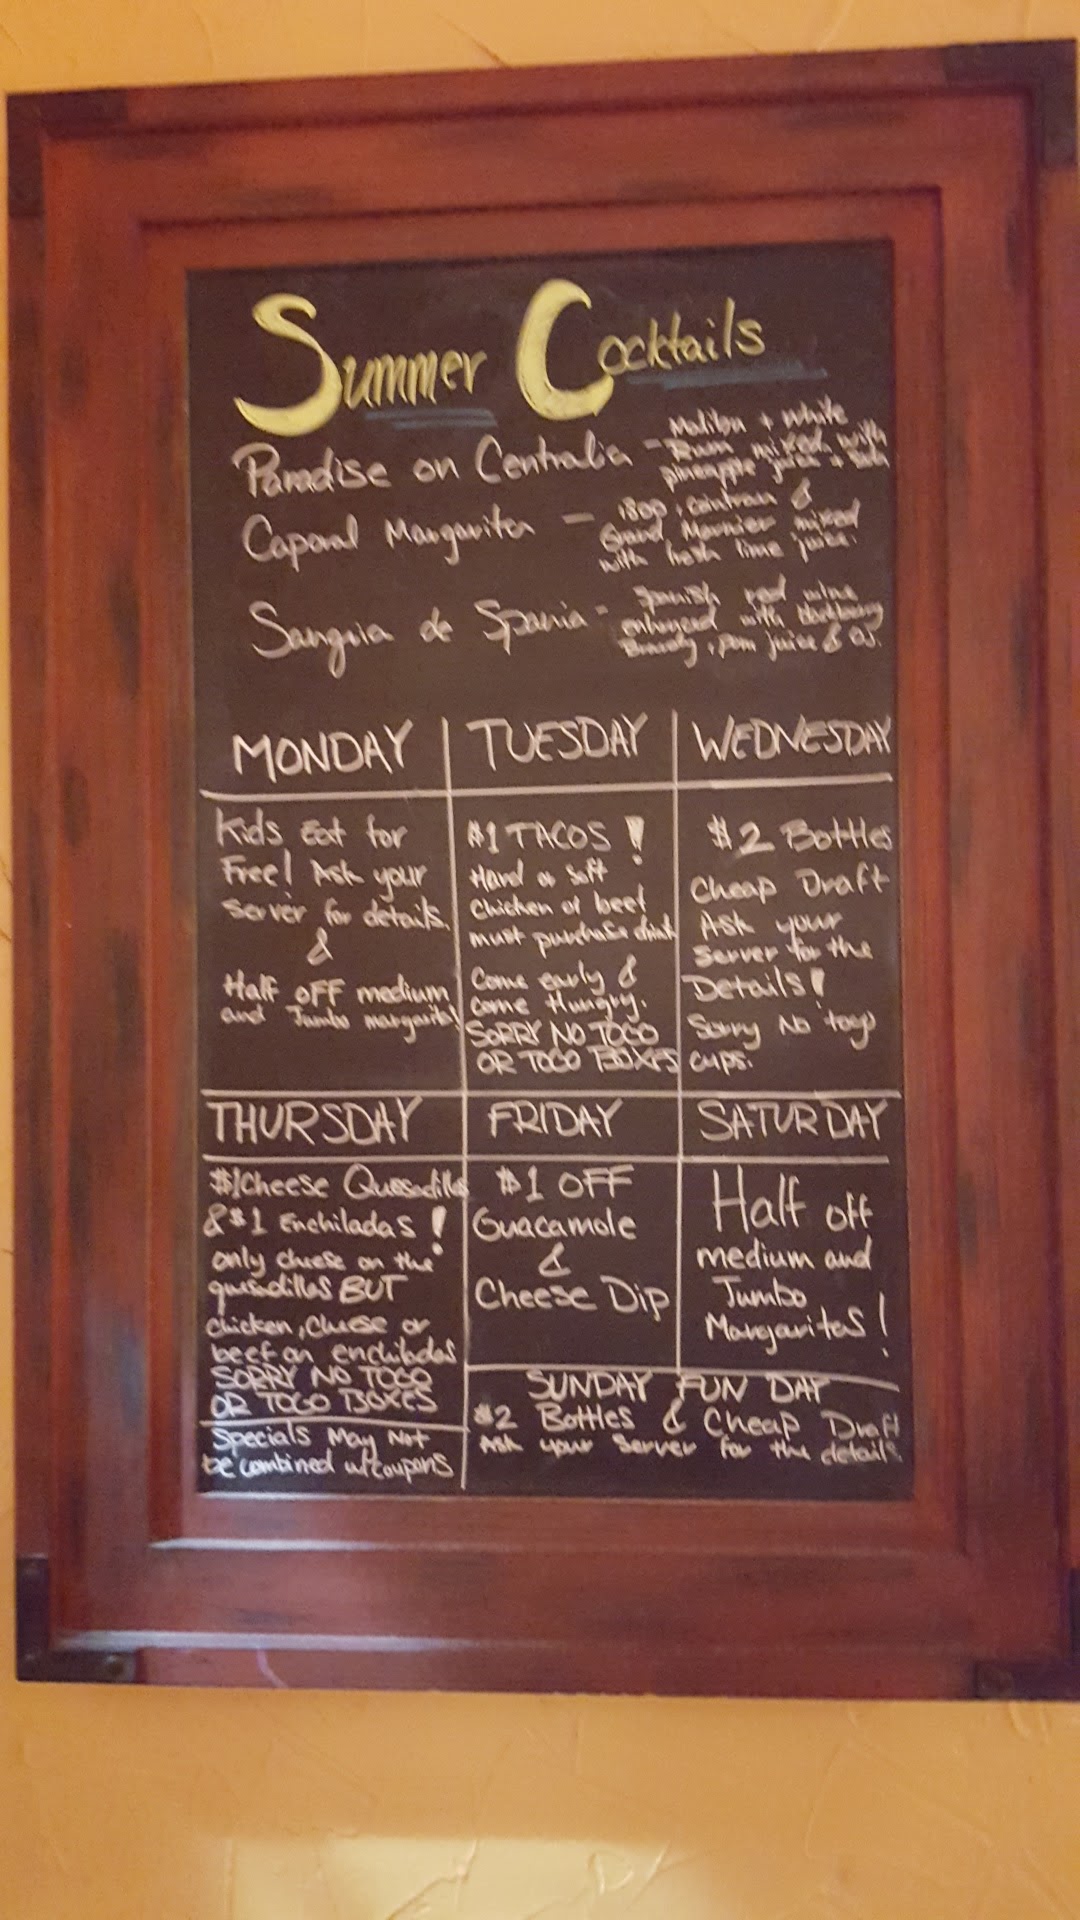 Summer Cocktails
Paradise on Centralia - Malibu + White
Rum mixed with
pineapple juice +
Caporal Margarita - 1800, cointreau &
Grand Marnier mixed
with fresh lime juice.
Sangria de Spania - Spanish red wine
enhanced with blackberry
Brandy, pom juice & OJ.
MONDAY
Kids Eat for
Free! Ask your
server for details.
&
Half OFF medium
and Jumbo margaritas
TUESDAY
$1 TACOS!
Hard or Soft
Chicken or beef
must purchase drink
Come early &
come Hungry.
SORRY NO TOGO
OR TOGO BOXES
WEDNESDAY
$2 Bottles
Cheap Draft
Ask your
server for the
Details!
Sorry No togo
cups.
THURSDAY
$1 Cheese Quesadillas
& $1 Enchiladas!
only cheese on the
quesadillas BUT
chicken, cheese or
beef on enchiladas
SORRY NO TOGO
OR TOGO BOXES
Specials May Not
be combined w/coupons
FRIDAY
$1 OFF
Guacamole
&
Cheese Dip
SATURDAY
Half off
medium and
Jumbo
Margaritas!
SUNDAY FUN DAY
$2 Bottles & Cheap Draft
Ask your Server for the details.